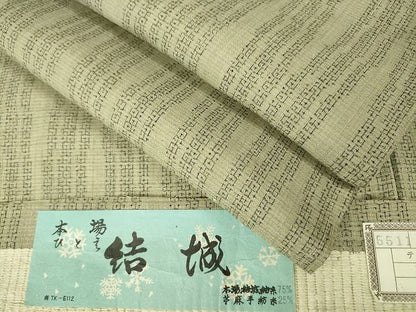 本場
ひとえ
結城
TK-6112
本場結城紬糸75%
苧麻手紡糸25%
551
テ